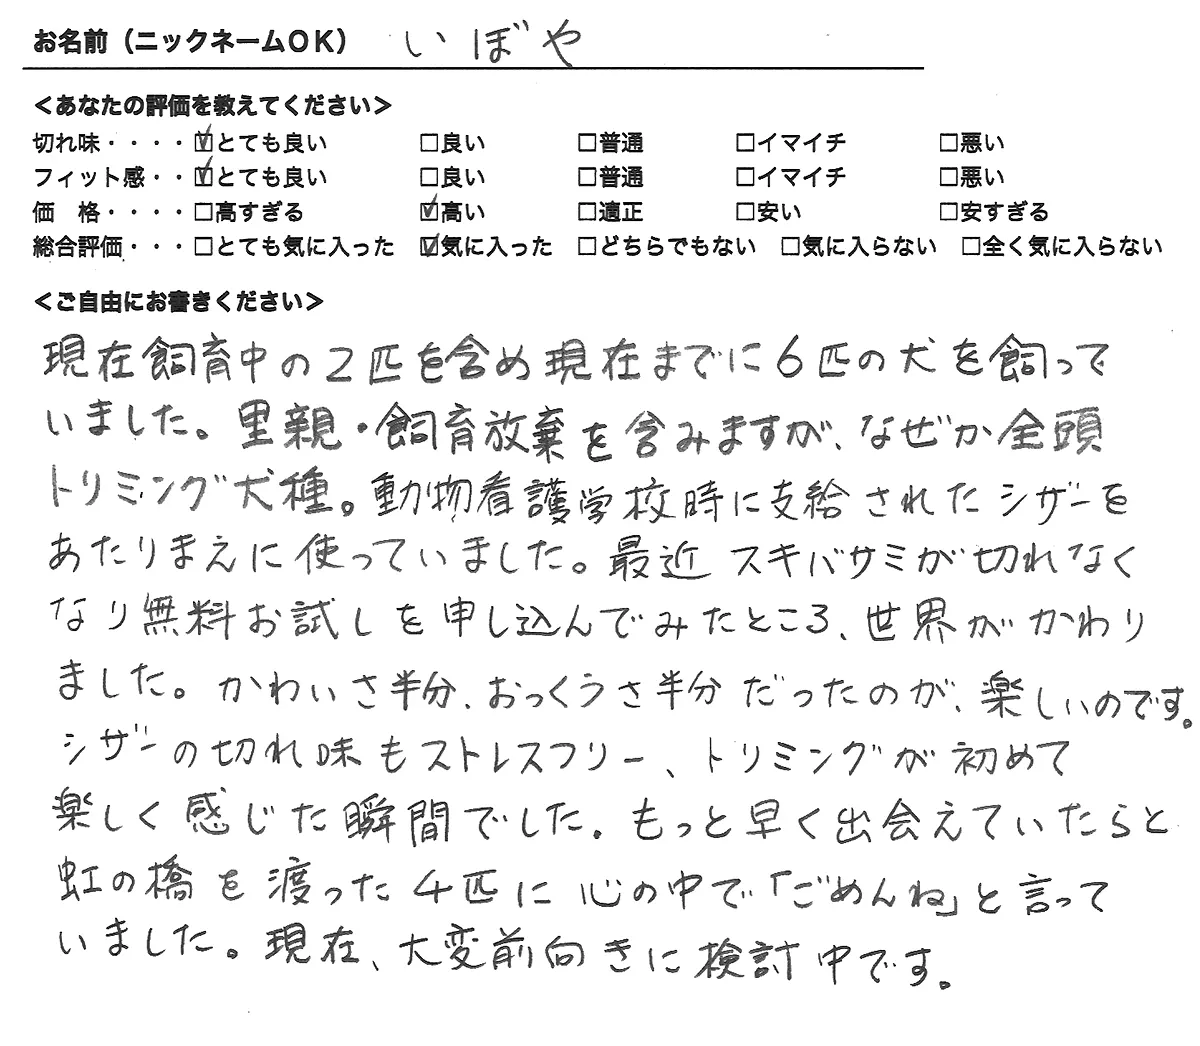 お名前（ニックネームOK） いぼや
＜あなたの評価を教えてください＞
切れ味・・・・☑とても良い □良い □普通 □イマイチ □悪い
フィット感・・☑とても良い □良い □普通 □イマイチ □悪い
価　格・・・・□高すぎる ☑高い □適正 □安い □安すぎる
総合評価・・・□とても気に入った ☑気に入った □どちらでもない □気に入らない □全く気に入らない
＜ご自由にお書きください＞
現在飼育中の2匹を含め現在までに6匹の犬を飼って
いました。里親・飼育放棄を含みますが、なぜか全頭
トリミング犬種。動物看護学校時に支給されたシザーを
あたりまえに使っていました。最近スキバサミが切れなく
なり無料お試しを申し込んでみたところ、世界がかわり
ました。かわいさ半分、おっくうさ半分だったのが、楽しいのです。
シザーの切れ味もストレスフリー、トリミングが初めて
楽しく感じた瞬間でした。もっと早く出会えていたらと
虹の橋を渡った4匹に心の中で「ごめんね」と言って
いました。現在、大変前向きに検討中です。